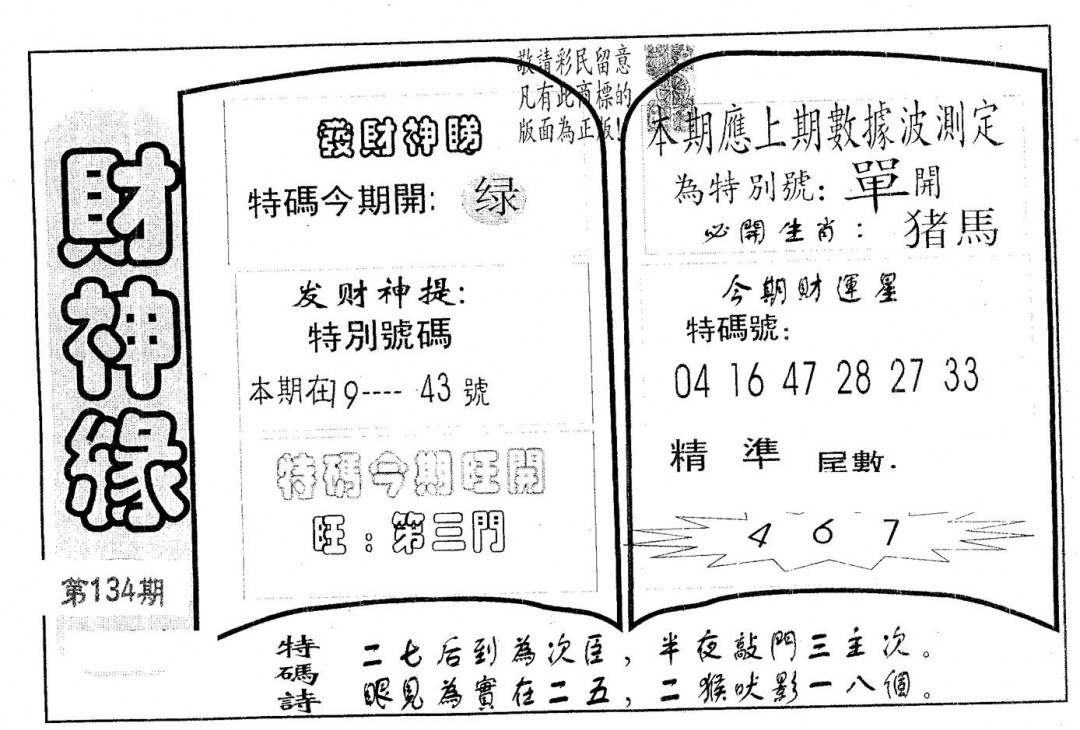 財神緣
第134期
敬請彩民留意
凡有此商標的
版面為正版!
發財神睇
特碼今期開: 绿
发财神提:
特別號碼
本期在19---- 43 號
特碼今期旺開
旺:第三門
本期應上期數據波測定
為特別號: 單開
必開生肖: 猪馬
今期財運星
特碼號:
04 16 47 28 27 33
精 準 尾數.
4 6 7
特碼詩
二七后到為次臣,半夜敲門三主次。
眼見為實在二五,二猴吠影一八個。